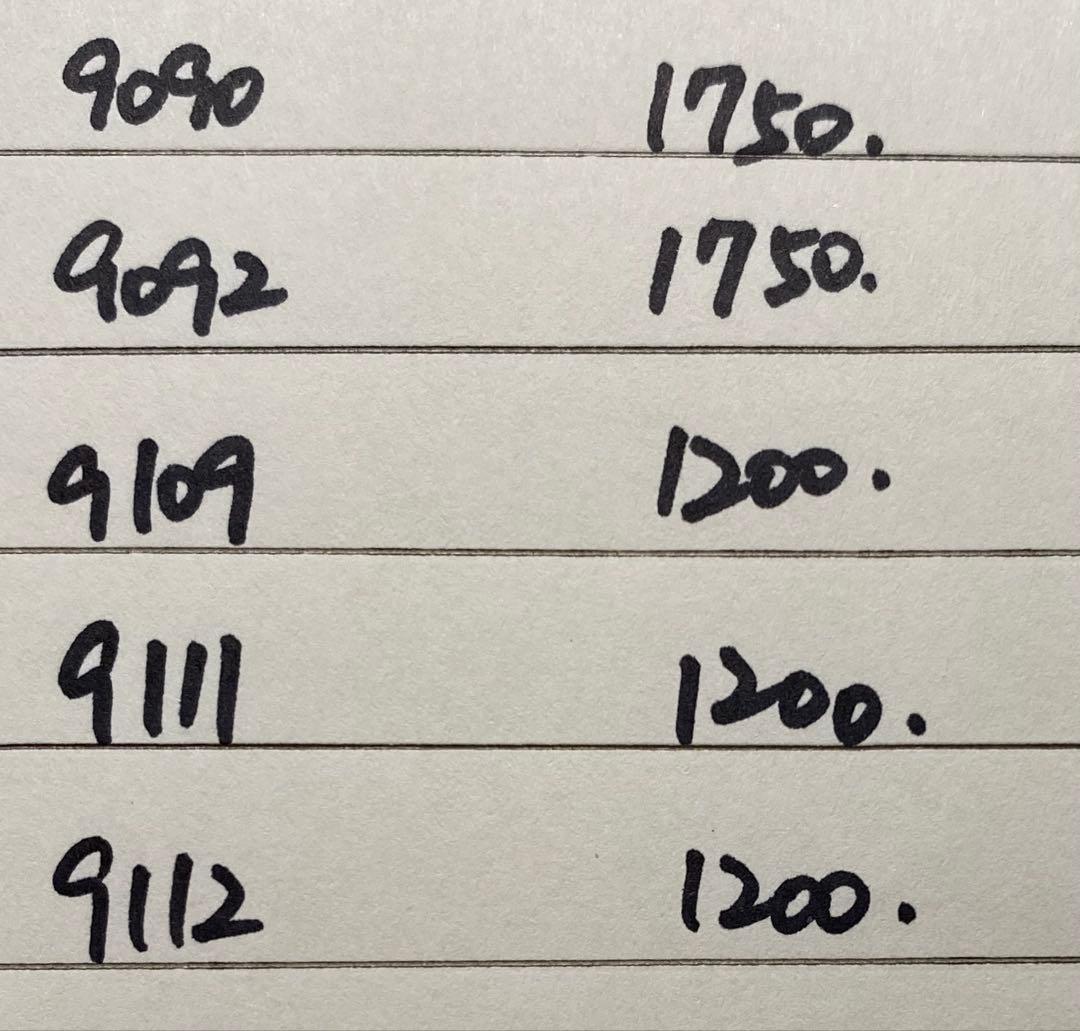 9090 1750.
9092 1750.
9109 1200.
9111 1200.
9112 1200.